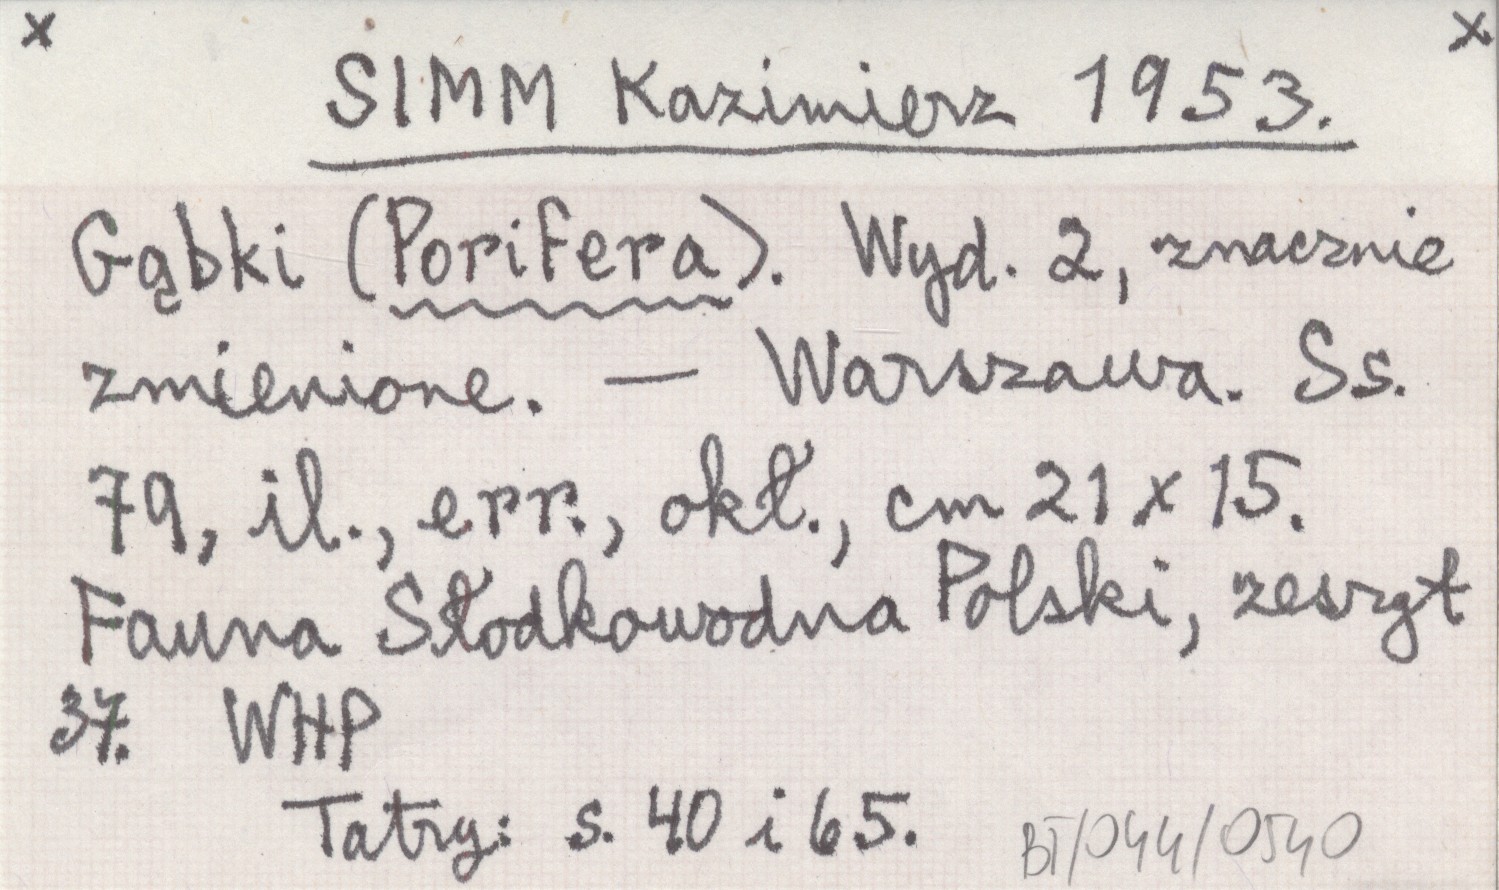 x x
SIMM Kazimierz 1953.
Gąbki (Porifera). Wyd. 2, znacznie
zmienione. — Warszawa. Ss.
79, il., err., okł., cm 21 x 15.
Fauna Słodkowodna Polski, zeszyt
37. WHP
Tatry: s. 40 i 65.
BT/044/0540